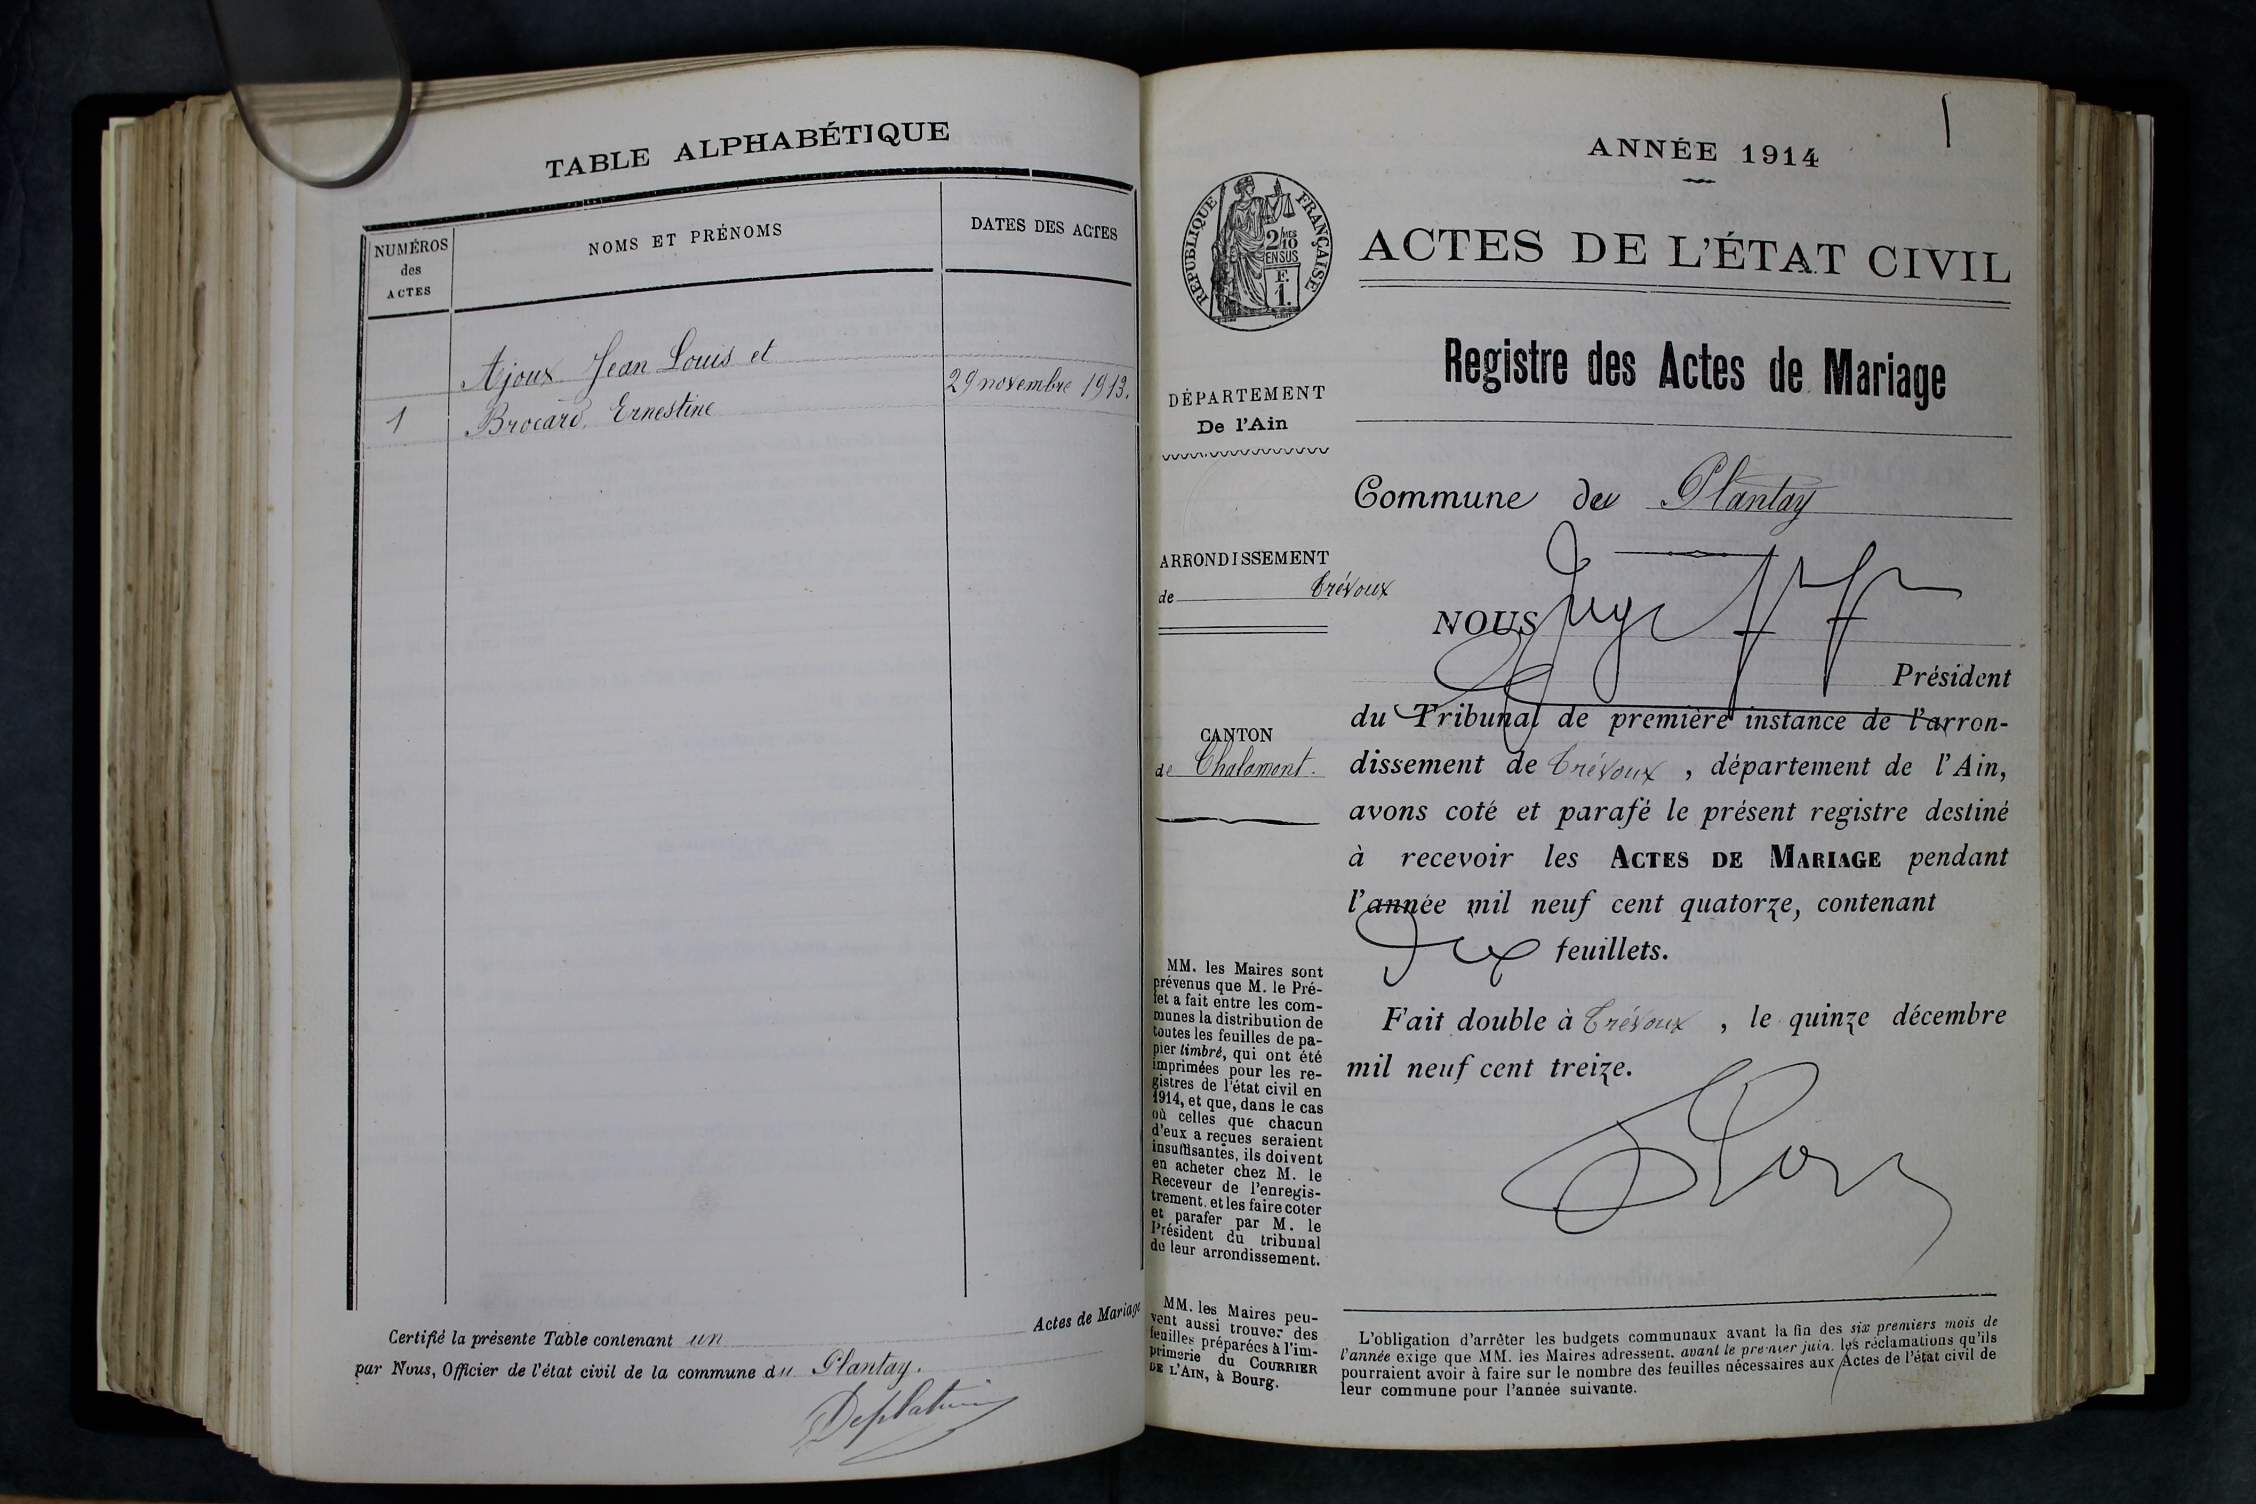 TABLE ALPHABÉTIQUE
NUMÉROS
des
ACTES
NOMS ET PRÉNOMS
DATES DES ACTES
Ajoux Jean Louis et
1
Brocard Ernestine
29 novembre 1913.
Certifié la présente Table contenant un
Actes de Mariage
par Nous, Officier de l'état civil de la commune du Plantay.
1
ANNÉE 1914
RÉPUBLIQUE FRANÇAISE
2/10
EN SUS
F.
1.
ACTES DE L'ÉTAT CIVIL
Registre des Actes de Mariage
DÉPARTEMENT
De l'Ain
ARRONDISSEMENT
de Trévoux
CANTON
de Chalamont.
MM. les Maires sont
prévenus que M. le Pré-
fet a fait entre les com-
munes la distribution de
toutes les feuilles de pa-
pier timbré, qui ont été
imprimées pour les re-
gistres de l'état civil en
1914, et que, dans le cas
où celles que chacun
d'eux a reçues seraient
insuffisantes, ils doivent
en acheter chez M. le
Receveur de l'enregis-
trement, et les faire coter
et parafer par M. le
Président du tribunal
de leur arrondissement.
MM. les Maires peu-
vent aussi trouver des
feuilles préparées à l'im-
primerie du COURRIER
DE L'AIN, à Bourg.
Commune du Plantay
NOUS Juge
Président
du Tribunal de première instance de l'arron-
dissement de Trévoux, département de l'Ain,
avons coté et parafé le présent registre destiné
à recevoir les ACTES DE MARIAGE pendant
l'année mil neuf cent quatorze, contenant
feuillets.
Fait double à Trévoux, le quinze décembre
mil neuf cent treize.
L'obligation d'arrêter les budgets communaux avant la fin des six premiers mois de
l'année exige que MM. les Maires adressent, avant le premier juin, les réclamations qu'ils
pourraient avoir à faire sur le nombre des feuilles nécessaires aux Actes de l'état civil de
leur commune pour l'année suivante.